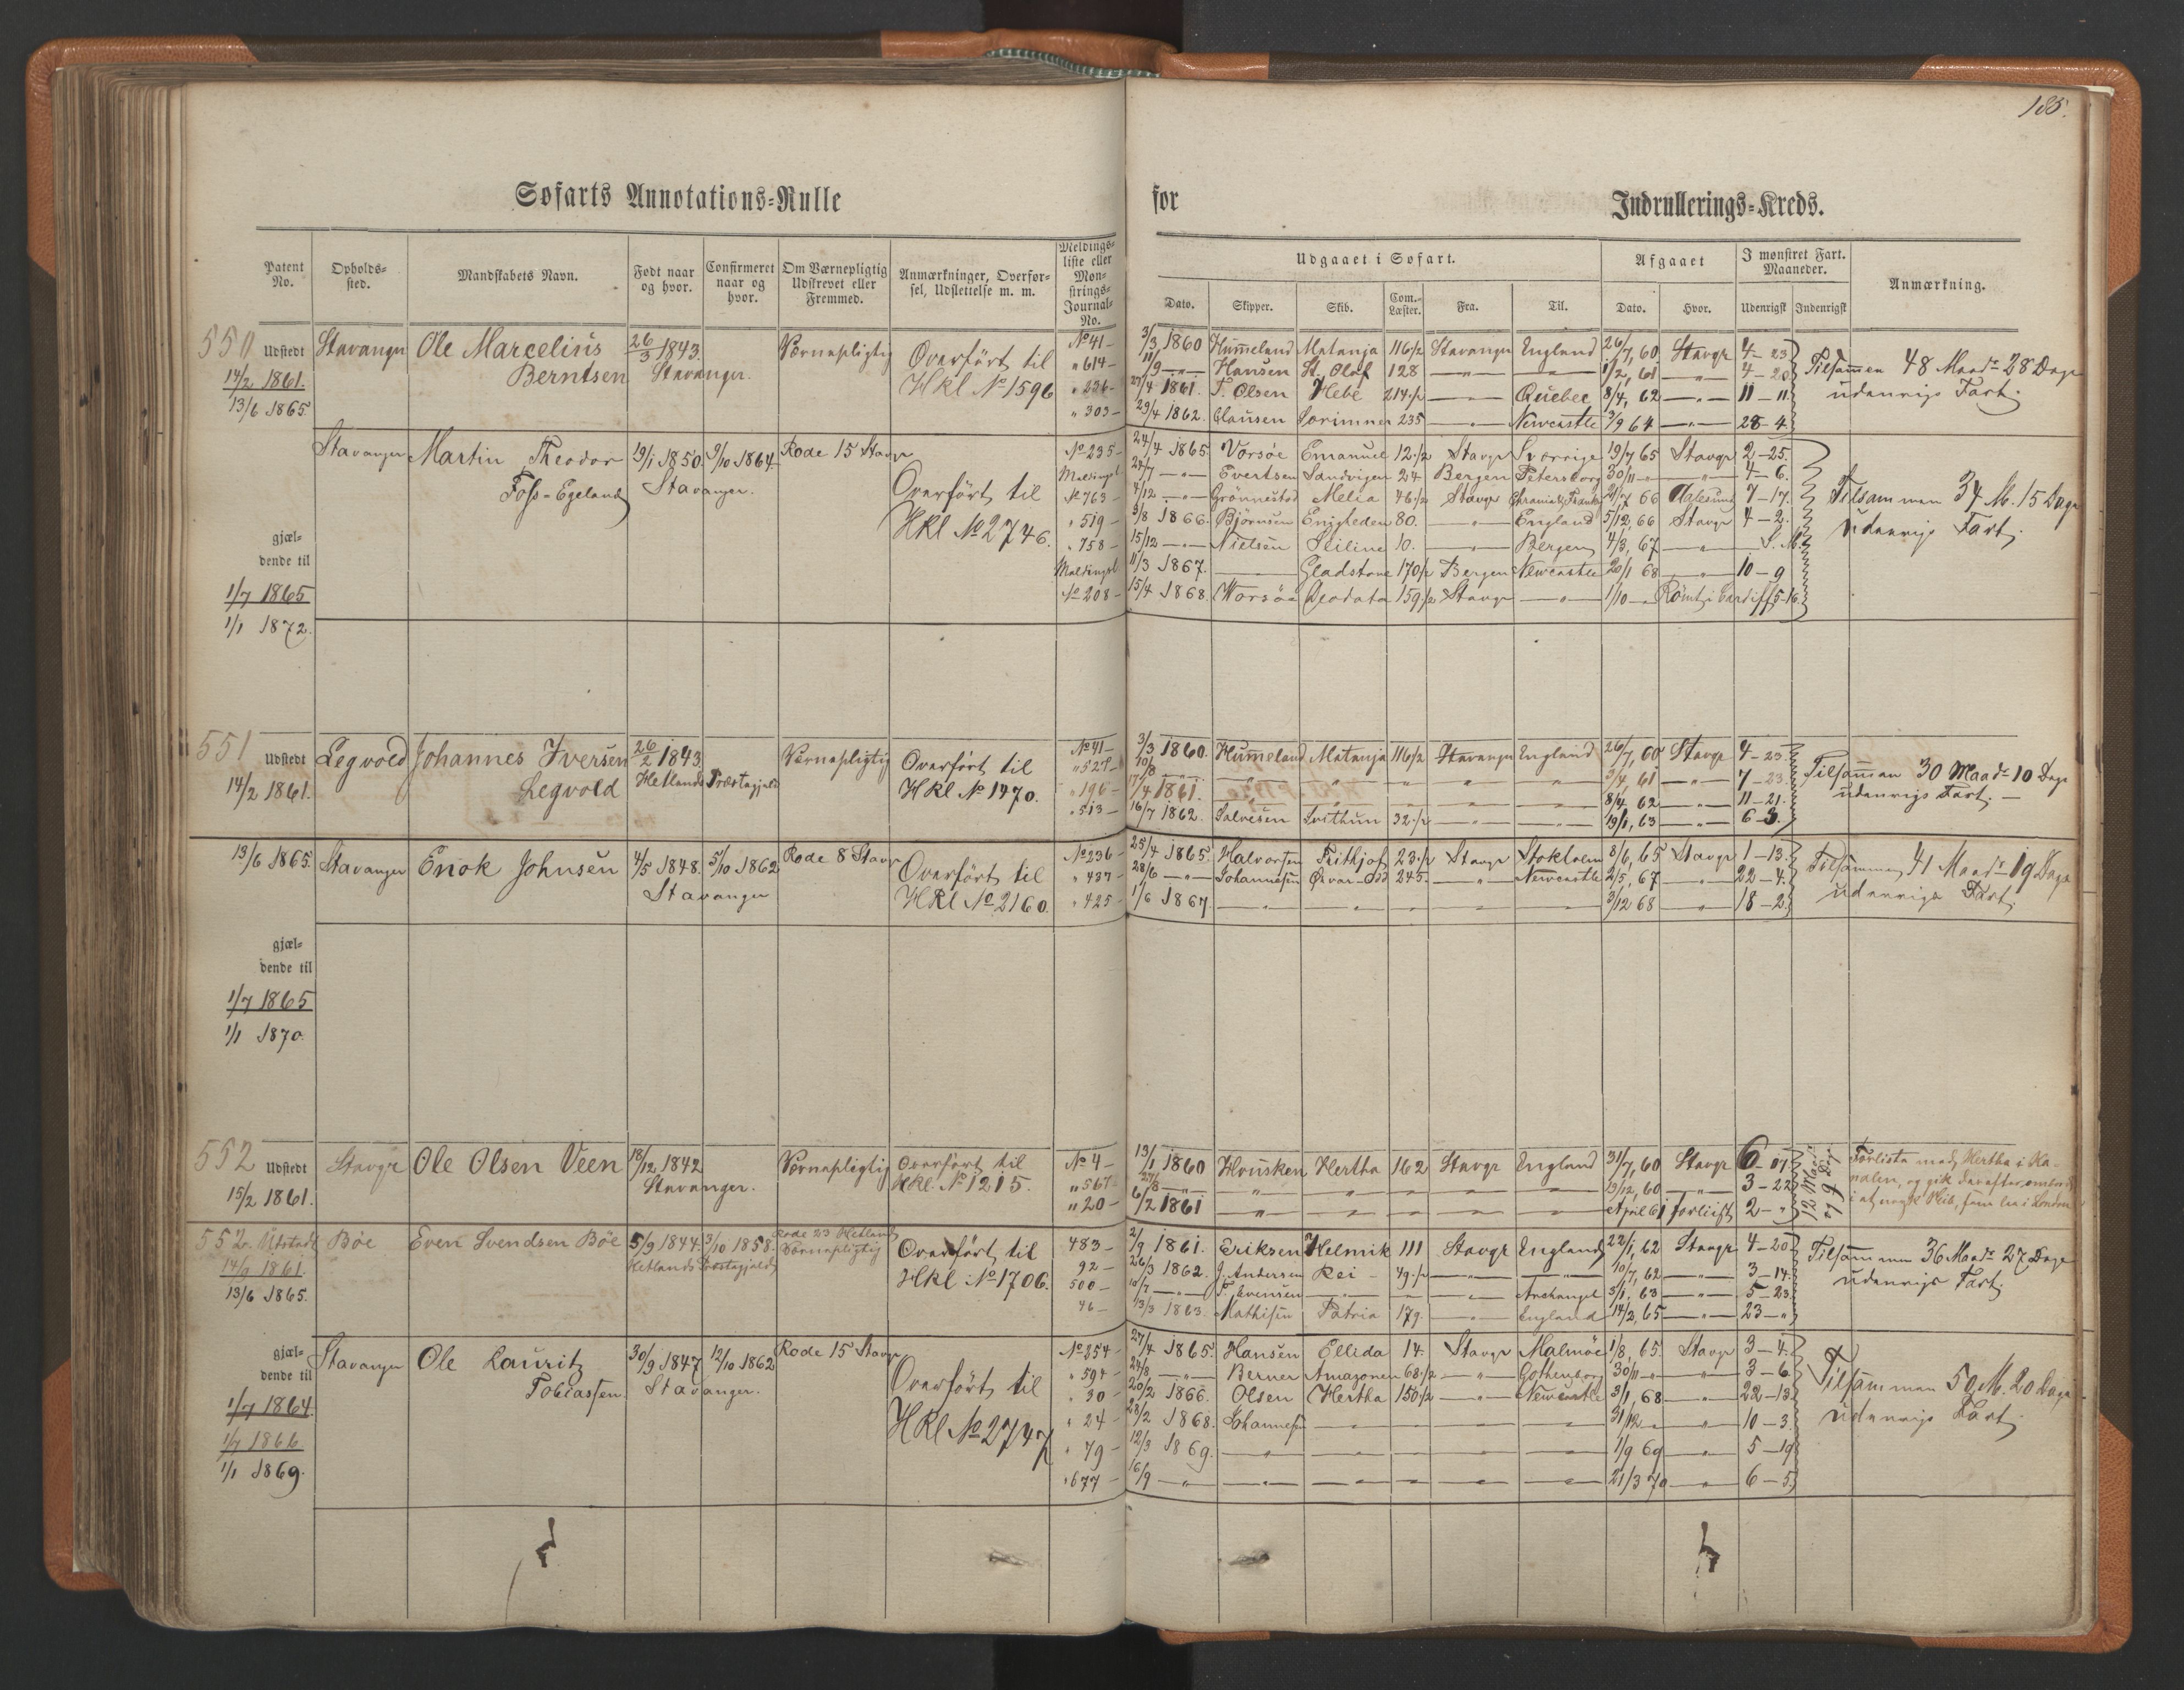 185.
Søfarts Annotations-Rulle for Indrullerings-Kreds.
Patent No. | Opholds-sted. | Mandskabets Navn. | Født naar og hvor. | Confirmeret naar og hvor. | Om Værnepligtig Udskrevet eller Fremmed. | Anmærkninger, Overførsel, Udslettelse m. m. | Meldings-liste eller Mønstrings-Journal-No. | Udgaaet i Søfart. | Afgaaet | I mønstret Fart. Maaneder. | Anmærkning.
Dato. | Skipper. | Skib. | Com.-Læster. | Fra. | Til. | Dato. | Hvor. | Udenrigsk | Indenrigsk
550 Udstedt 14/2 1861. 13/6 1865. | Stavanger | Ole Marcelius Berntsen | 26/3 1843. Stavanger. | Værnepligtig | Overført til Hkl No 1596
No 41 – | 3/3 1860 | Hummeland | Matanja | 116 1/2 | Stavanger | England | 26/7, 60 | Stavgr | 4 – 23
" 614 – | 11/9 — " — | Hansen | St. Olaf | 128 | — " — | — " — | 1/2, 61 | — " — | 4 – 20
" 236 – | 27/4 1861. | T. Olsen | Hebe | 214 1/2 | — " — | Quebec | 8/4, 62 | — " — | 11 – 11
" 303 – | 29/4 1862. | Clausen | Sorimner | 235 | — " — | Newcastle | 3/9 64 | — " — | 28 – 4.
Tilsammen 48 Maadr 28 Dage udenrigs Fart.
Stavanger | Martin Theodor Foss-Egeland | 19/1 1850. Stavanger. | 9/10 1864 | Rode 15 Stavgr | Overført til Hkl No 2746.
No 235 – | 24/4 1865. | Vorsøe | Emanuel | 12 1/2 | Stavgr | Sverrige | 19/7 65 | Stavgr | 2 – 25.
Meldingsl | 24/7 — " — | Evertsen | Sandvigen | 24 | Bergen | Petersborg | 30/11 — " — | — " — | 4 – 6.
No 763 – | 4/12 — " — | Grønnestad | Melia | 46 1/2 | Stavgr | 21/7 66 | Aalesund | 7 – 17.
" 519 – | 3/8 1866. | Bjørnsen | Enigheden | 80. | — " — | England | 5/12, 66 | Stavgr | 4 – 2.
" 758 – | 15/12 — " — | Nielsen | Seiline | 10. | — " — | Bergen | 4/3, 67 | — " —
Meldingsl | 11/3 1867. | — | Gladstone | 170 1/2 | Bergen | Newcastle | 20/1 68 | — " — | 10 – 9
No 208 – | 15/4 1868. | Worsøe | Deodata | 159 1/2 | Stavgr | — " — | 1/10 — " | Rømt i Cardiff | 5 – 16.
Tilsammen 34 M. 15 Dage udenrigs Fart.
gjældende til
1/7 1865
1/1 1872.
551 Udstedt 14/2 1861. | Legvold | Johannes Iversen Legvold | 26/2 1843 Hetlands Præstegjeld | Værnepligtig | Overført til Hkl No 1470.
No 41 – | 3/3 1860. | Hummeland | Matanja | 116 1/2 | Stavanger | England | 26/7, 60 | Stavgr | 4 – 23.
" 527 – | 20/8 — " — | — " — | " | " | " | " | 3/4, 61 | — " — | 7 – 23
" 196 – | 17/4 1861. | — " — | " | " | " | " | 8/4 62 | — " — | 11 – 21.
" 513 – | 16/7 1862. | Salvesen | Svithun | 32 1/2 | — " — | — " — | 19/1, 63 | — " — | 6 – 3.
Tilsammen 30 Maadr 10 Dage udenrigs Fart. —
13/6 1865. | Stavanger | Enok Johnsen | 4/5 1848. Stavanger | 5/10 1862 | Rode 8 Stavgr | Overført til Hkl No 2160.
No 236 – | 25/4 1865. | Halvorsen | Frithjof | 23 1/2 | Stavgr | Stokholm | 8/6, 65 | Stavgr | 1 – 13.
" 437 – | 28/6 — " — | Johannesen | Ørvar-Odd | 245. | — " — | Newcastle | 2/5, 67 | — " — | 22 – 4.
" 425 – | 1/6 1867. | — " — | — " — | — " — | — " — | — " — | 3/12 68 | — " — | 18 – 2.
Tilsammen 41 Maadr 19 Dage udenrigs Fart.
gjældende til
1/7 1865
1/1 1870.
552 Udstedt 15/2 1861. | Stavgr | Ole Olsen Veen | 18/12 1842 Stavanger. | Værnepligtig | Overført til Hkl. No 1215.
No 4 – | 13/1 1860 | Housken | Hertha | 162 | Stavgr | England | 31/7, 60 | Stavgr | 6 – 07
" 567 – | 27/8 — " — | " | " | " | " | " | 19/12, 60 | — " — | 3 – 22
" 20 – | 6/2 1861 | " | " | " | " | " | April 61 | forliist | 2 – "
12 Maadr 9 Dage
Forliste med Hertha i Kanalen, og gik derefter ombord i et nyt Skib, som laa i London
552 Udstedt 14/9 1861. 13/6 1865. | Bøe | Even Svendsen Bøe | 5/9 1844. Hetlands Præstegjeld | 3/10 1858. | Rode 23 Hetland Værnepligtig | Overført til Hkl No 1706.
483 – | 2/9 1861. | Eriksen | Helmik | 111 | Stavgr | England | 22/1, 62 | Stavgr | 4 – 20
92 – | 26/3 1862. | J. Andersen | Rei – | 49 1/2 | — " — | — " — | 10/7, 62 | — " — | 3 – 14.
500 – | 10/7 — " — | T. Evensen | — | — | — " — | Archangel | 3/1, 63 | — " — | 5 – 23.
46 – | 13/3 1863. | Mathisen | Patria | 179. | — " — | England | 14/2, 65 | — " — | 23 – "
Tilsammen 36 Maadr 27 Dage udenrigs Fart.
gjældende til
1/7 1864.
1/7 1866.
1/1 1869.
Stavanger | Ole Lauritz Tobiassen. | 30/9 1847 Stavanger. | 12/10 1862 | Rode 15 Stavgr | Overført til Hkl No 2747
No 254 – | 27/4 1865. | Hansen | Ellida | 14. | Stavgr | Malmöe | 1/8, 65. | Stavgr | 3 – 4.
" 594 – | 24/8 — " — | Berner | Amazonen | 68 1/2 | — " — | Gothenborg | 30/11 — " — | — " — | 3 – 6.
" 30 – | 20/2 1866. | Olsen | Hertha | 150 1/2 | — " — | Newcastle | 3/1, 68 | — " — | 22 – 13.
" 24 – | 28/2 1868. | Johannesen | — " — | — " — | — " — | — " — | 31/12 — " | — " — | 10 – 3.
" 79 – | 12/3 1869. | — " — | — " — | — " — | — " — | — " — | 1/9 69 | — " — | 5 – 19
" 677 – | 16/9 — " — | — " — | — " — | — " — | — " — | — " — | 21/3 70 | — " — | 6 – 5.
Tilsammen 50 M. 20 Dage udenrigs Fart.